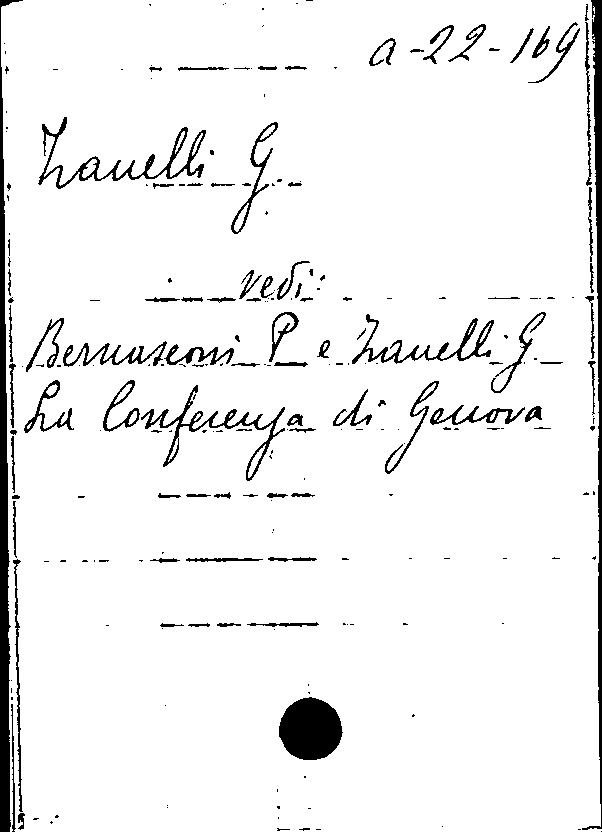 a-22-169
Zanelli G.
vedi:
Bernasconi P. e Zanelli G
La Conferenza di Genova